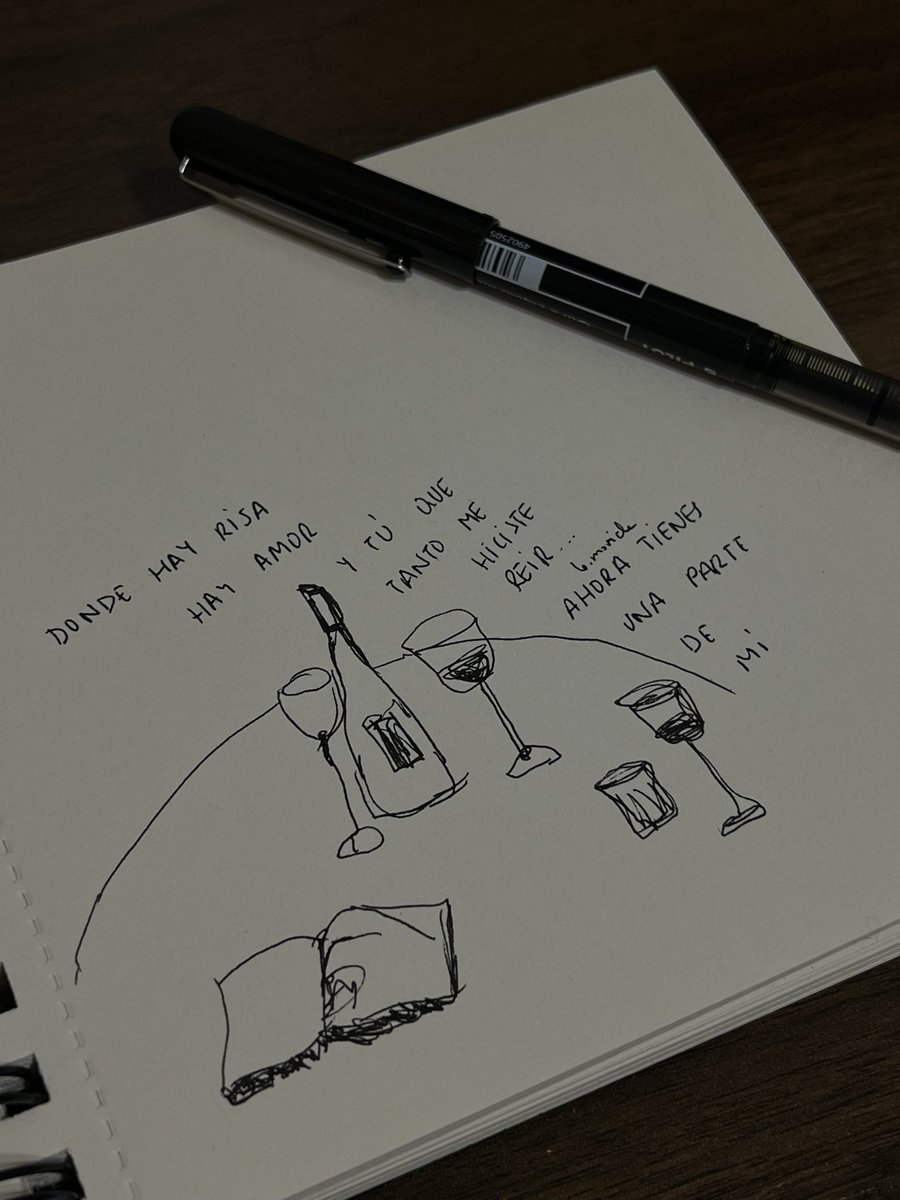 DONDE HAY RISA
HAY AMOR
Y TÚ QUE
TANTO ME
HICISTE
REIR...
AHORA TIENES
UNA PARTE
DE
MÍ
4902505
PILOT